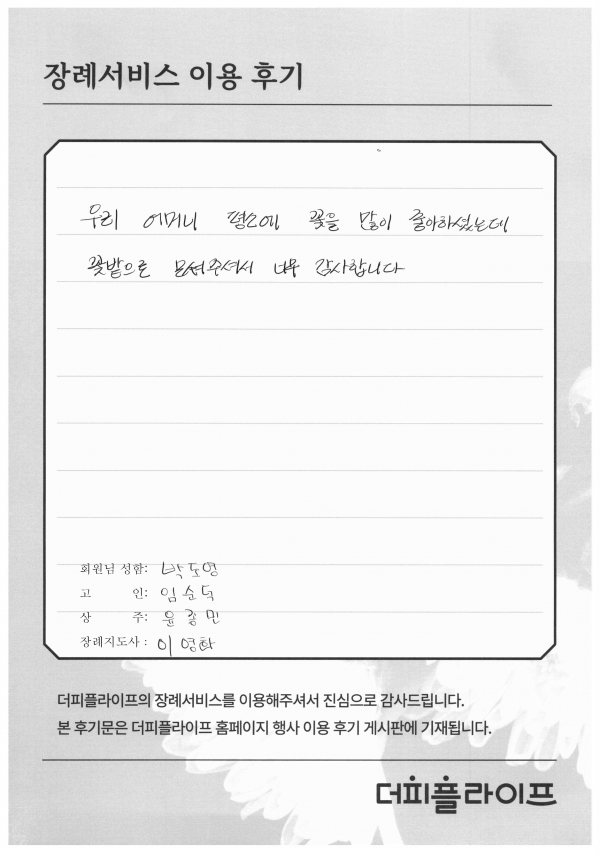 장례서비스 이용 후기
우리 어머니 평소에 꽃을 많이 좋아하셨는데
꽃밭으로 모셔주셔서 너무 감사합니다
회원님 성함: 박도영
고 인: 임순덕
상 주: 윤종민
장례지도사 : 이영화
더피플라이프의 장례서비스를 이용해주셔서 진심으로 감사드립니다.
본 후기문은 더피플라이프 홈페이지 행사 이용 후기 게시판에 기재됩니다.
더피플라이프